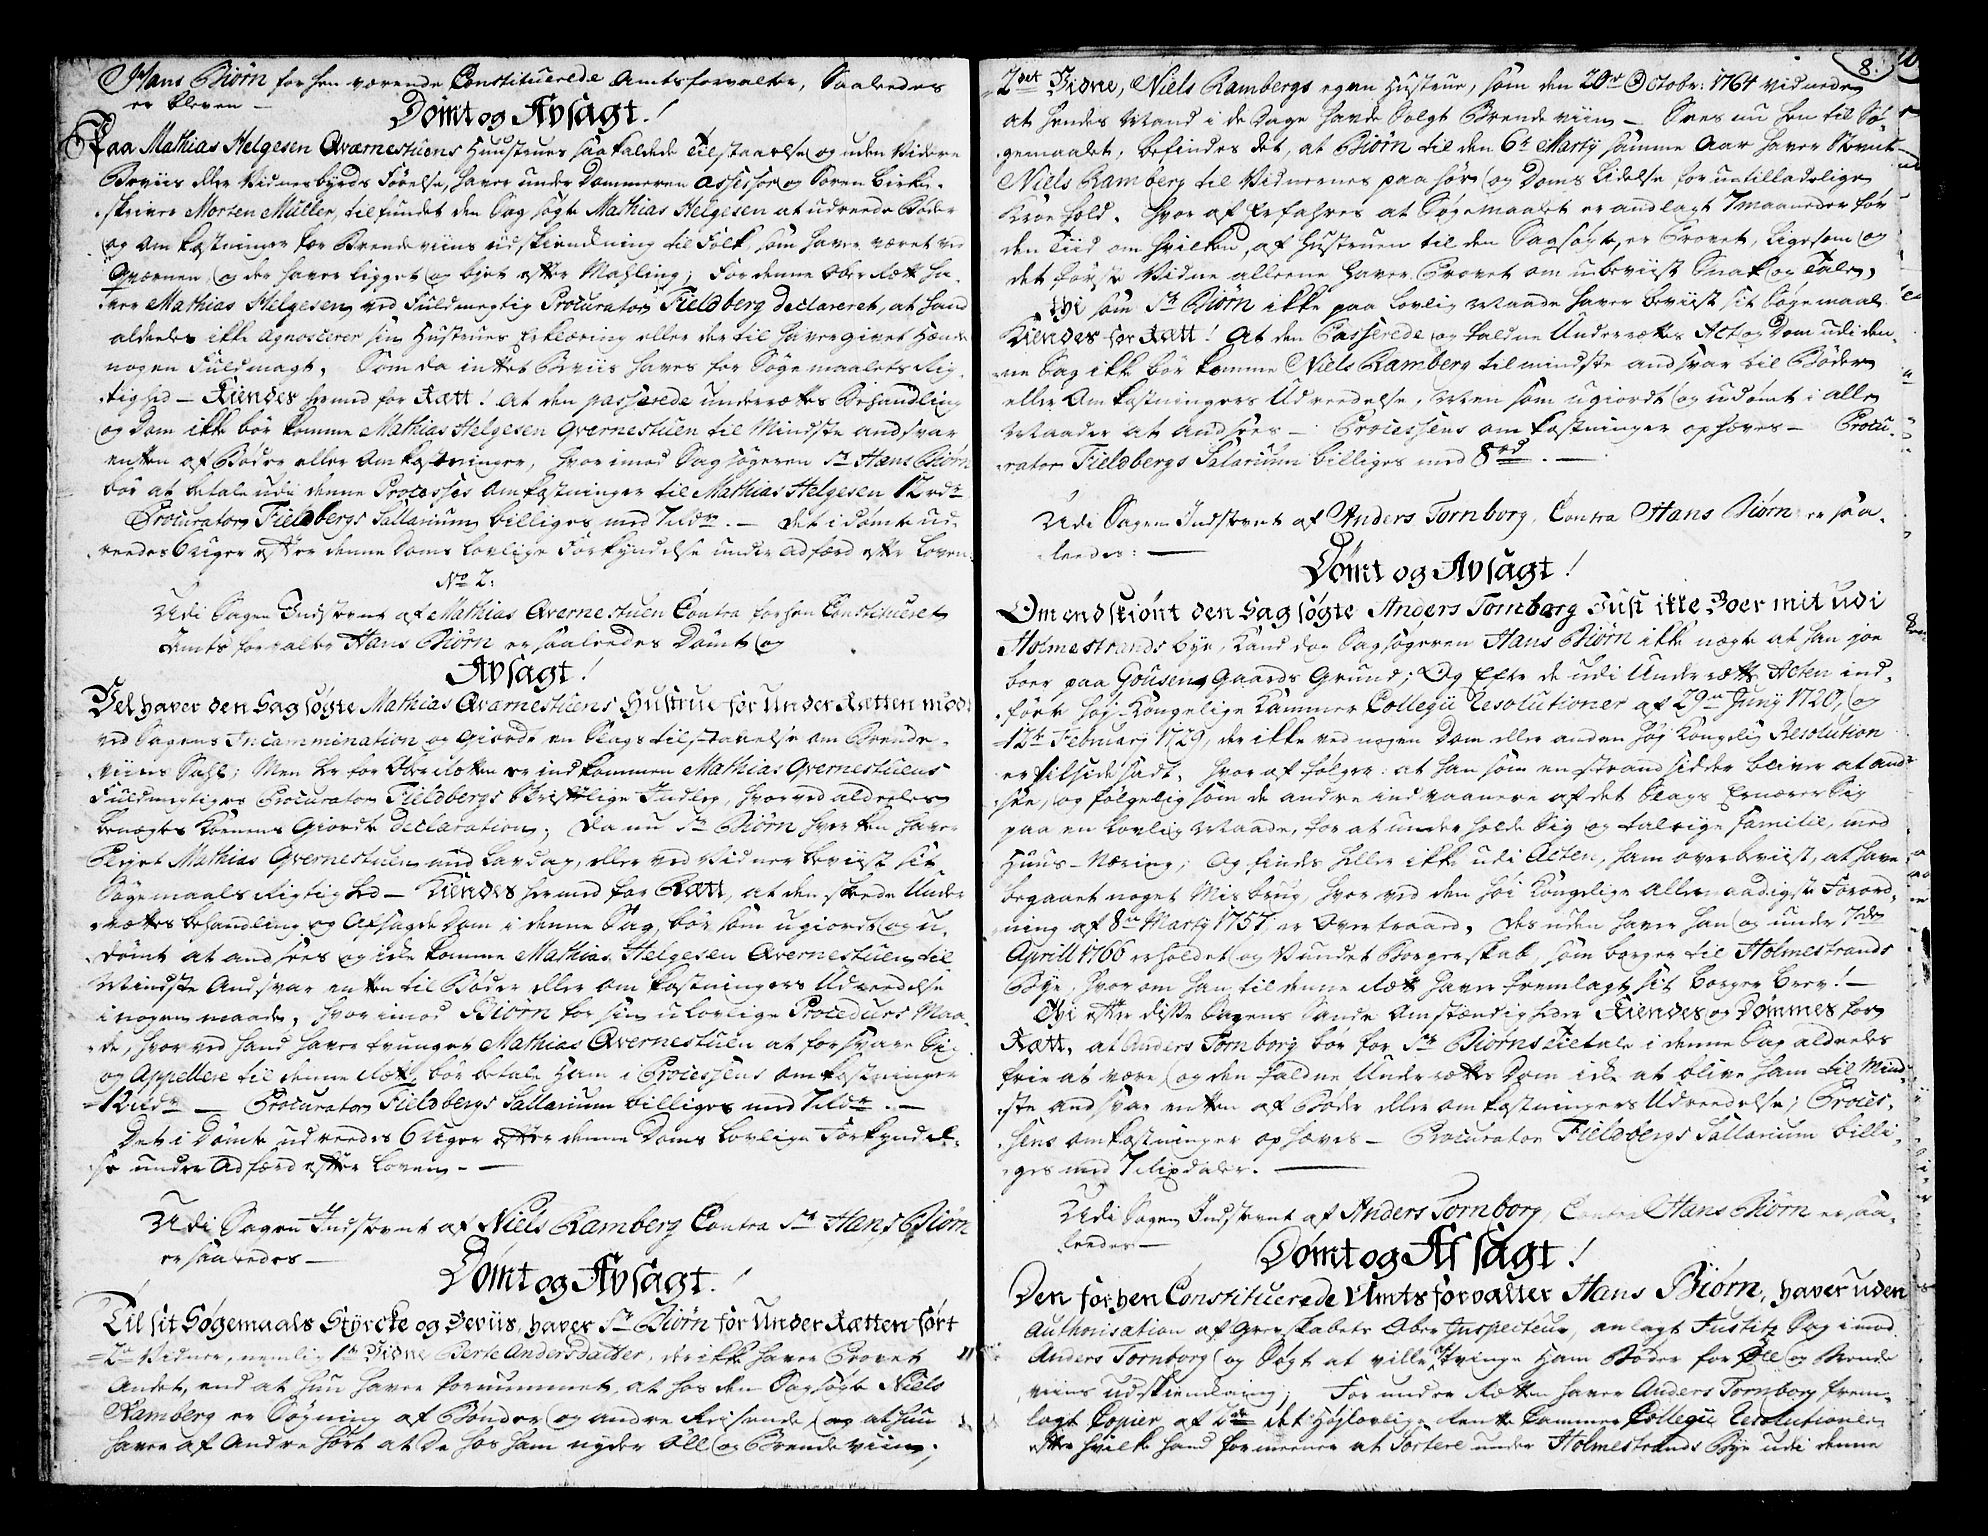 Hans Biørn forhen værende Constituerede Amtsforvalter, Saaledes
er bleven —
Dømt og Avsagt!
Paa Mathias Helgesen Qværnestuens Huustrues saakaldede Tilstaaelse og uden Videre
Beviis eller Vidnesbyrds Førelse, haver under Dommeren Assessor og Soren birke-
skriver Morten Müller, tilfundet den Sagsøgte Mathias Helgesen at udreede Bøder
og Omkostninger for Brendeviins udskienkning til Folk, som haver været ved
Qværnen, og der haver ligget og biet efter Mahling; For denne Ober Rett ha-
ver Mathias Helgesen ved Fuldmegtig Procurator Fieldberg declareret, at hand
aldeeles ikke agnoscerer sin Hustrues Erklæring eller der til haver givet Hende
nogen Fuldmagt. Som da intet Beviis haves for Søgemaalets Rig-
tighed — Kiendes hermed for Rætt! At den passerede underrettes Behandling
og Dom ikke bør komme Mathias Helgesen Qvernestuen til Mindste andsvar
enten af Bøder eller Omkostninger, hvorimod Sagsøgeren Sr Hans Biørn
bør at betale udi denne Processes Omkostninger til Mathias Helgesen 12 rdr
Procurator Fieldbergs Sallarium billiges med 7 rdr. — Det i dømte ud-
reedes 6 uger efter denne Doms lovlige Forkyndelse under adfærd efter Loven.
No 2:
Udi Sagen Indstevnt af Mathias Qvernestuen Contra forhen Constitueret
Amtsforvalter Hans Biørn er saaleedes Dømt og
Avsagt!
Vel haver den Sagsøgte Mathias Qvarnestuens Hustrue for Under Rætten mødt
ved Sagens Incammination og Giorde en Slags tilstaaelse om Brende-
Viins Sahl; Men her for Oberretten er indkommen Mathias Qvernestuens
Fuldmegtiges Procurator Fieldbergs Skriftlige Indleg, hvorved aldeeles
benægtes Konens Giorde declaration; Da nu Sr Biørn hverken haver
Mathias Qvernestuen med Lavdag, eller ved Vidner beviist sit
Søgemaals Rigtighed — Kiendes hermed for Rætt, at den skeede Under
Rettes behandling og Afsagde Dom i denne Sag, bør som ugiordt og u-
dømt at andsees og icke komme Mathias Helgesen Qvernestuen til
Mindste Andsvar enten til Bøder eller omkostningers Udreedelse
i nogen maade, hvorimod Biørn for sin ulovlige Procedurs Maa-
de, hvorved hand haver tvungen Mathias Qvernestuen at forsvare Sig
og Appellere til denne Rett, bør betale Ham i Processens omkostninger
12 rdr — Procurator Fieldbergs Sallarium billiges med 7 rdr. —
Det i Dømte udreedes 6 Uger efter denne Doms lovlige Forkyndel-
se under Adfærd efter Loven. —
Udi Sagen Indstevnt af Niels Ramberg Contra Sr Hans Biørn
er saaledes —
Dømt og Avsagt!
Til sit Søgemaals Styrcke og Beviis, haver Sr Biørn for Under Rætten ført
2de Vidner, nemlig 1te Vidne Berte Andersdatter, der ikke haver Provet
Andet, end at hun haver fornummet, at hos den Sagsøgte Niels
Ramberg er Søgning af Bønder og andre Reisende, og at hun
haver af Andre hørt at De hos ham nyder Øll og Brendeviin;
8.
2det Vidne, Niels Rambergs egen Hustrue, som den 20de Octobr: 1764 vidnede
at hendes Mand i de Dage havde Solgt Brendeviin — Sees nu hen til Sø-
gemaalet, befindes det, at Biørn til den 6te Martii samme Aar haver Stevnt
Niels Ramberg til Vidnernes paahør og Doms Lidelse for utilladelige
Kroehold. Hvoraf Erfahres at Søgemaalet er andlagt 7 maaneder før
den Tiid om hvilken, af Hustruen til den Sagsøgte, er Provet, Ligesom og
det første Vidne alleene haver Provet om ubeviist Snak og Tale,
Thi som Sr Biørn ikke paa lovlig Maade haver beviist sit Søgemaal
Kiendes for Rætt! At den Passerede og faldne Underrettes Act og Dom udi den-
ne Sag ikke bør komme Niels Ramberg til mindste andsvar til Bøder
eller Omkostningers Udreedelse, Men som ugiordt og udømt i alle
Maader at Andsees — Processens omkostninger ophæves — Procu-
rator Fieldbergs Salarium billiges med 8 rd. —
Udi Sagen Indstevnt af Anders Tornborg, Contra Hans Biørn er saa-
leedes: —
Dømt og Avsagt!
Omendskiønt den Sagsøgte Anders Tornborg Just ikke Boer mit udi
Holmestrands bye, Kand dog Sagsøgeren Hans Biørn ikke negte at han jo
boer paa Gousen Gaards Grund; Og Efter de udi Underretts Acten ind-
førte høj Kongelige Kammer Collegii Resolutioner af 29de Junij 1720, og
12te Februarj 1729, der ikke ved nogen Dom eller anden høj Kongelig Resolution
er tilsidesadt, hvoraf følger: at han som en strandsidder bliver at and-
see, og følgelig som de andre indvaanere af det Slags Ernærer Sig
paa en Lovlig Maade, for at underholde Sig og talrige Familie, med
Huus-Næring; Og findes heller ikke udi Acten, ham overbeviist, at have
begaaet noget Misbrug, hvorved den høi Kongelige Allernaadigste Forord-
ning af 8de Martij 1757, er Overtraad, Desuden haver han og under 7de
Aprill 1766 erholdet og Vundet Borgerskab, som borger til Holmestrands
Bye, hvorom han til denne Rett haver fremlagt sit borger Brev! —
Thi efter disse Sagens Sande Omstændigheder Kiendes og Dømmes for
Rætt, at Anders Tornborg bør for Sr Biørns tiltale i denne Sag aldeeles
frie at være, og den faldne Underretts Dom icke at blive ham til Mind-
ste andsvar enten af Bøder eller omkostningers Udreedelse; Proces-
sens omkostninger ophæves — Procurator Fieldbergs Sallarium billi-
ges med 7 Rixdaler. —
Udi Sagen Indstevnt af Anders Tornborg, Contra Hans Biørn er saa-
leedes —
Dømt og Afsagt!
Den forhen Constituerede Amtsforvalter Hans Biørn, haver uden
Authorisation af Grevskabets Ober Inspecteur, anlagt Justitz Sag imod
Anders Tornborg og Søgt at ville tvinge Ham Bøder for Øll og Brende
viins udskienkning; For underretten haver Anders Tornborg frem-
lagt Copier af 2de det Høylovlige Rentte Cammer Collegii Resolutioner
efter hvilke hand formeener at Sortere under Holmestrands Bye udi denne